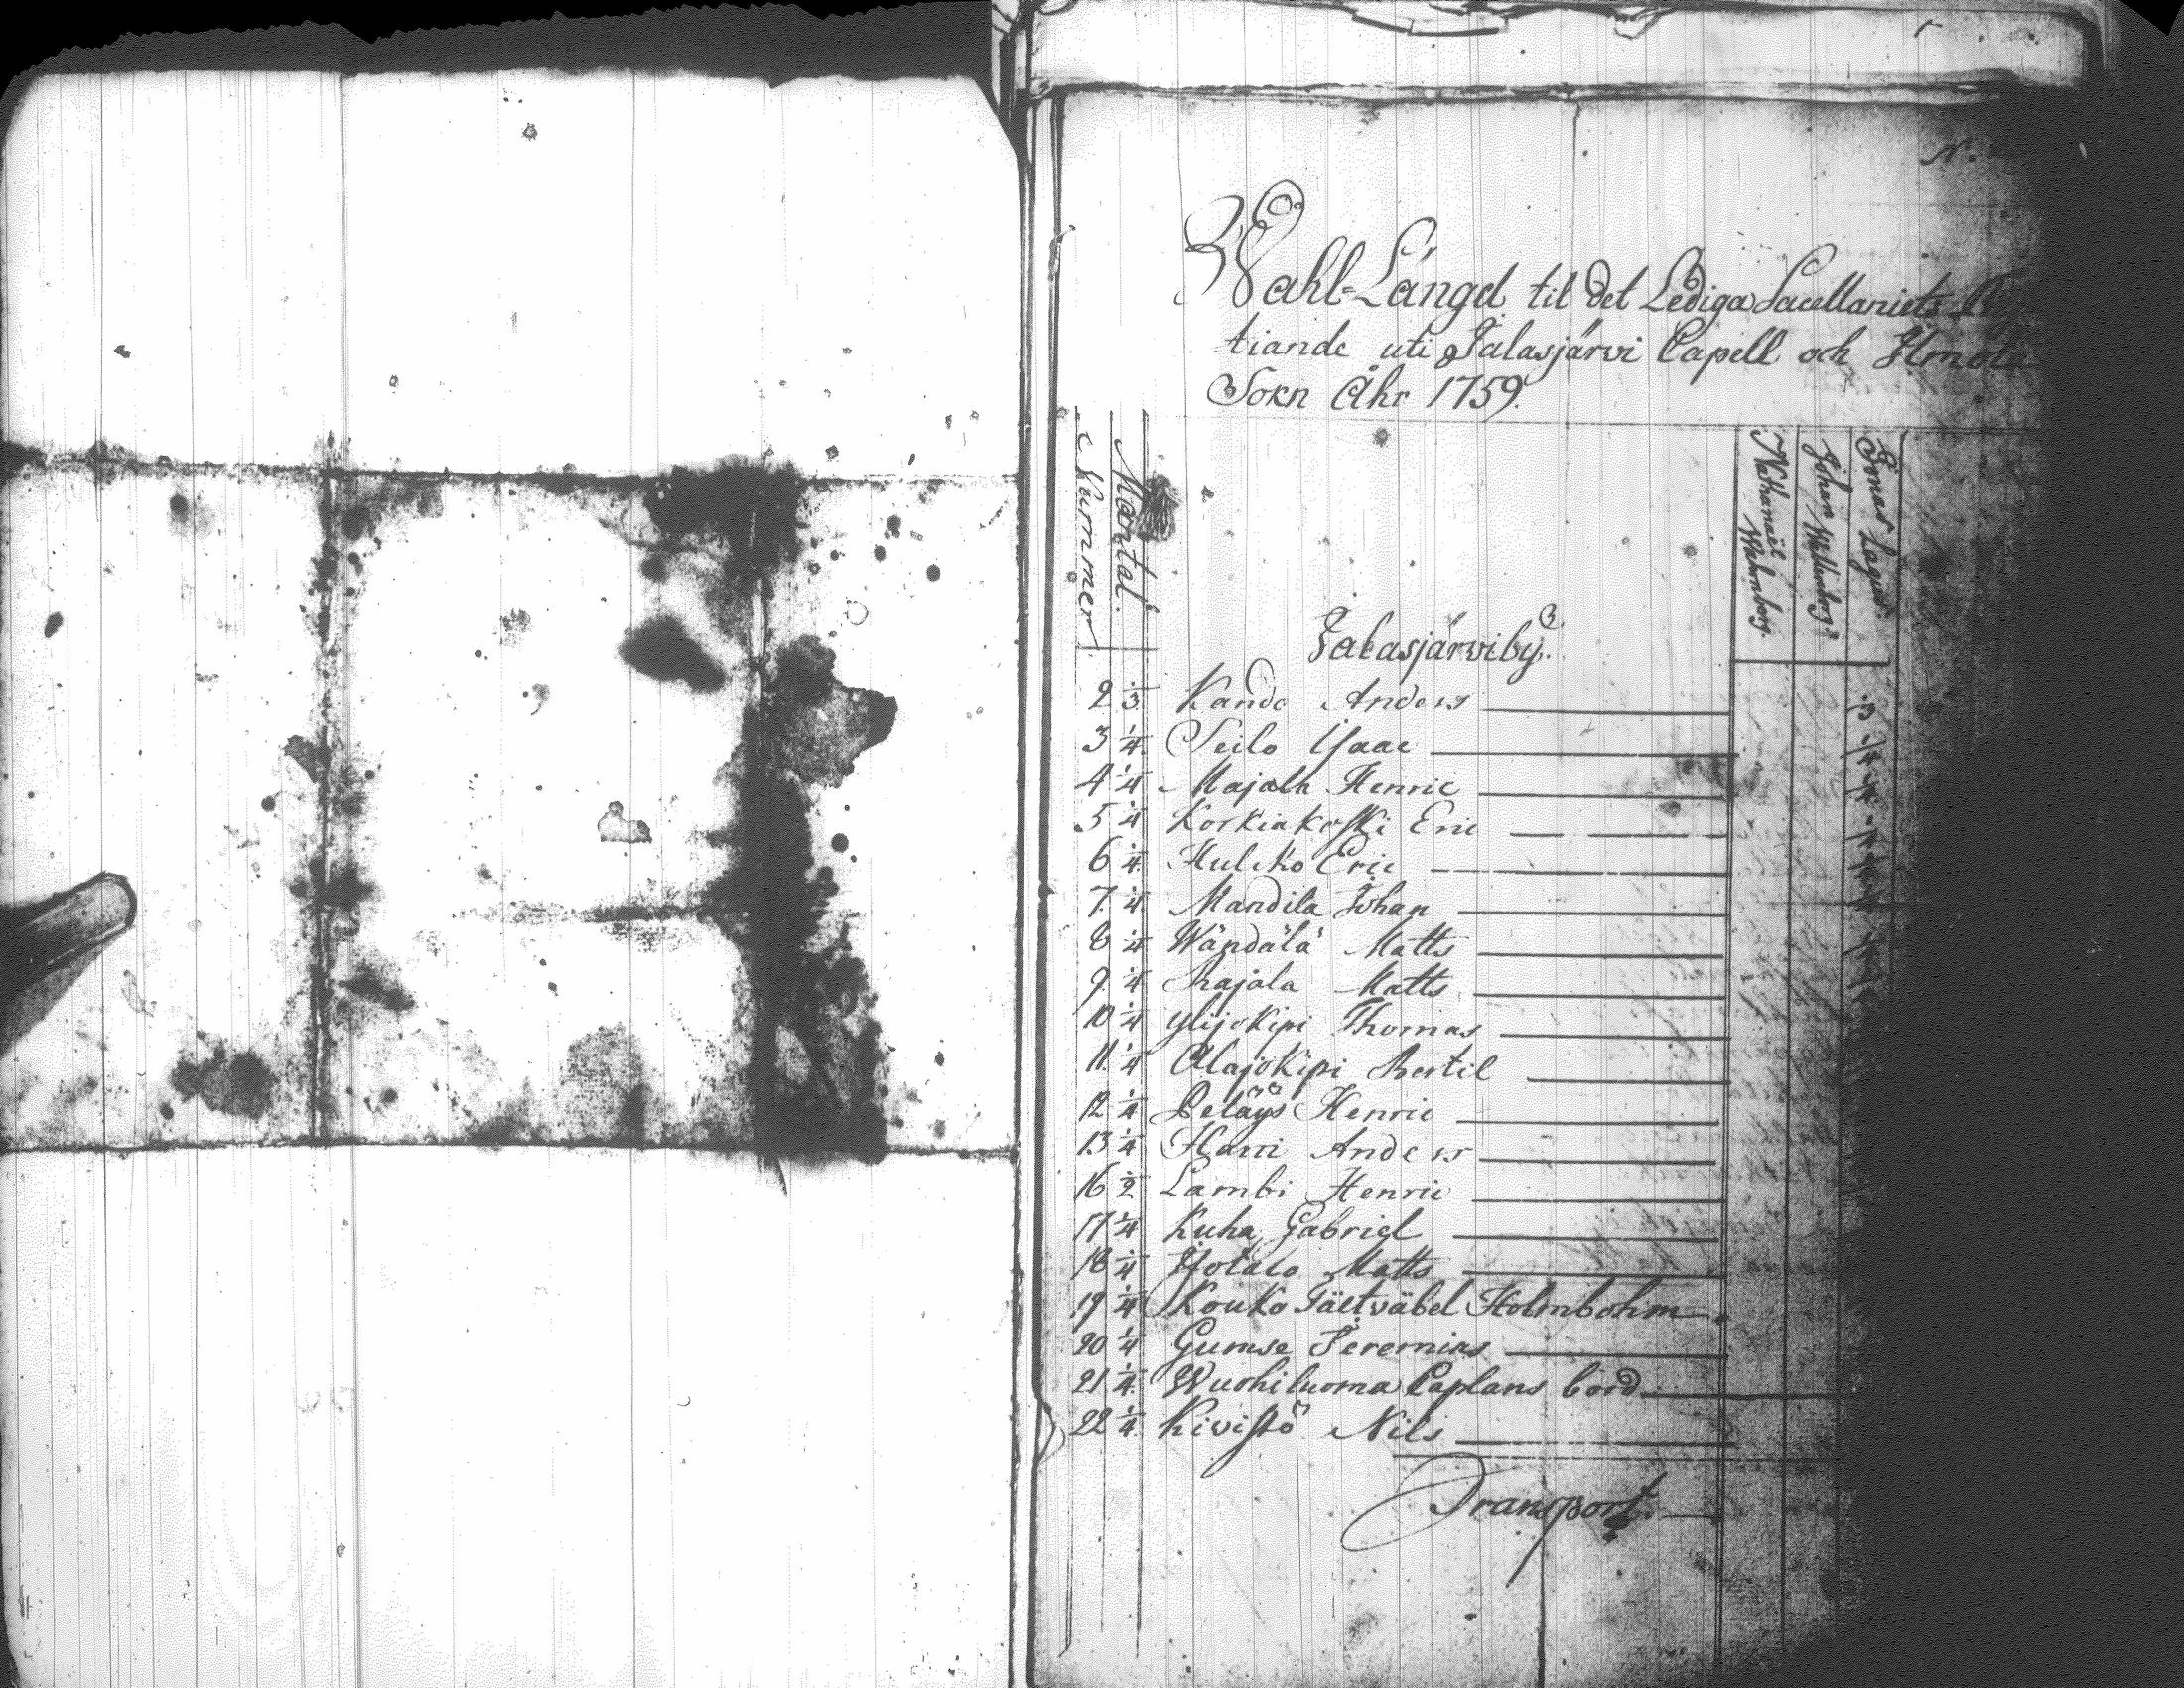 Wahl-Längd til det Lediga Sacellaniets
tiande uti Jalasjärvi Capell och Ilmola
Sokn Åhr 1759.
Nummer
Mantal.
Nathanaël Wahnberg
Johan
Jonas Lagus
Jalasjärviby.
2 1/3 Kando Anders
3 1/4 Seilo Isaac
4 1/4 Majala Henric
5 1/4 Korkiakoski Eric
6 1/4 Hulcko Eric
7 1/4 Mandila Johan
8 1/4 Wändälä Matts
9 1/4 Rajala Matts
10 1/4 Ylijokipi Thomas
11 1/4 Alajokipi Bertil
12 1/4 Petäys Henric
13 1/4 Harri Anders
16 1/2 Lambi Henric
17 1/4 Kuha Gabriel
18 1/4 Isotalo Matts
19 1/4 Kouko Fältväbel Holmbohm
20 1/4 Gumse Jeremias
21 1/4 Wuohiluoma Caplans bord
22 1/4 Kivistö Nils
Transport